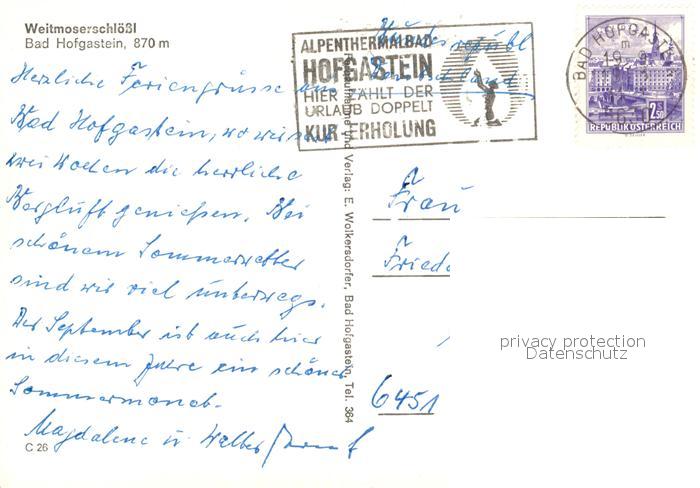 Weitmoserschlößl
Bad Hofgastein, 870 m
Herzliche Feriengrüsse aus
Bad Hofgastein, wo wir seit
zwei Wochen die herrliche
Bergluft genießen. Bei
schönem Sommerwetter
sind wir viel unterwegs.
Der September ist auch hier
in diesem Jahre ein schöner
Sommermonat.
Magdalene u. Walter
C 26
Verlag: E. Wolkersdorfer, Bad Hofgastein, Tel. 364
ALPENTHERMALBAD
HOFGASTEIN
HIER ZÄHLT DER
URLAUB DOPPELT
KUR ERHOLUNG
Bundesrepubl
Deutschland
BAD HOFGASTEIN
m
2.50
REPUBLIK ÖSTERREICH
Frau
Friede
6451
privacy protection
Datenschutz